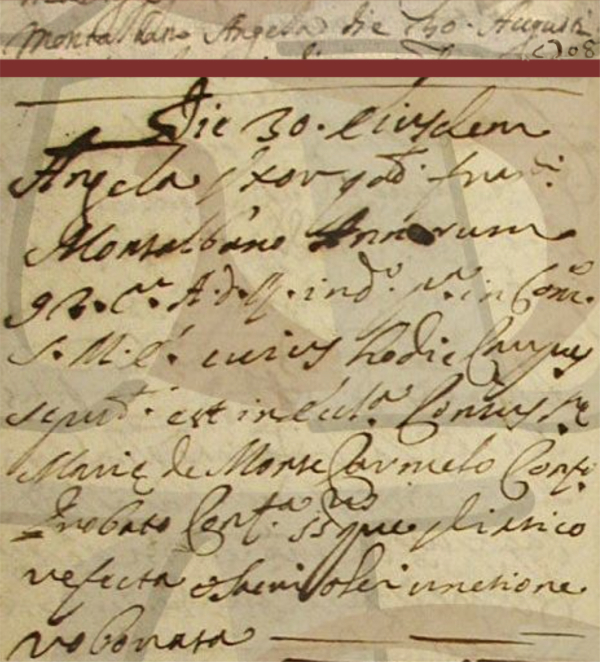 Montalbano Angela die 30. Augusti
1708
Die 30. eiusdem
Angela uxor qd.
Montalbano Annorum
92. Cr. A. D. in Com.
S. M. E. cuius hodie Corpus
sepult. est in Eccl.
Marię de Monte Carmelo Conf.
Probato Conf. SSque Viatico
refecta Olei unctione
roborata